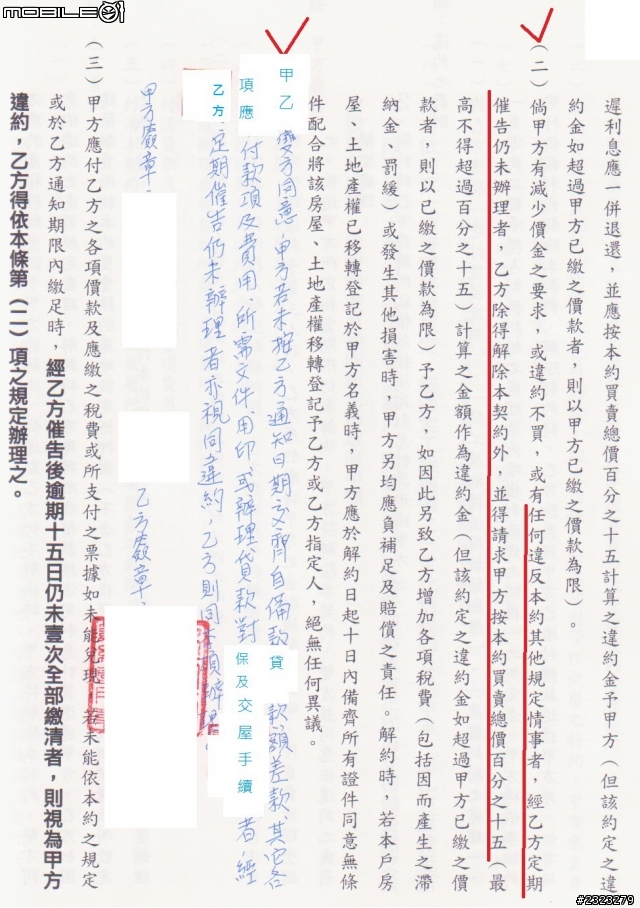 mobile01
遲利息應一併退還，並應按本約買賣總價百分之十五計算之違約金予甲方（但該約定之違
約金如超過甲方已繳之價款者，則以甲方已繳之價款為限）。
（二）倘甲方有減少價金之要求，或違約不買，或有任何違反本約其他規定情事者，經乙方定期
催告仍未辦理者，乙方除得解除本契約外，並得請求甲方按本約買賣總價百分之十五（最
高不得超過百分之十五）計算之金額作為違約金（但該約定之違約金如超過甲方已繳之價
款者，則以已繳之價款為限）予乙方，如因此另致乙方增加各項稅費（包括因而產生之滯
納金、罰緩）或發生其他損害時，甲方另均應負補足及賠償之責任。解約時，若本戶房
屋、土地產權已移轉登記於甲方名義時，甲方應於解約日起十日內備齊所有證件同意無條
件配合將該房屋、土地產權移轉登記予乙方或乙方指定人，絕無任何異議。
甲乙雙方同意，甲方若未按乙方通知日期交齊自備款貸款額差款其它各
項應付款項及費用，所需文件用印或辦理貸款對保及交屋手續者，經
乙方定期催告仍未辦理者亦視同違約，乙方則同本項辦理。
甲方簽章
乙方簽章：
（三）甲方應付乙方之各項價款及應繳之稅費或所支付之票據如未能兌現，若未能依本約之規定
或於乙方通知期限內繳足時，經乙方催告後逾期十五日仍未壹次全部繳清者，則視為甲方
違約，乙方得依本條第（二）項之規定辦理之。
#2323279